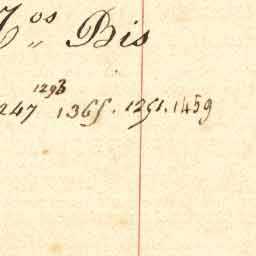 Nos Bis
1293
247 1365. 1251. 1459